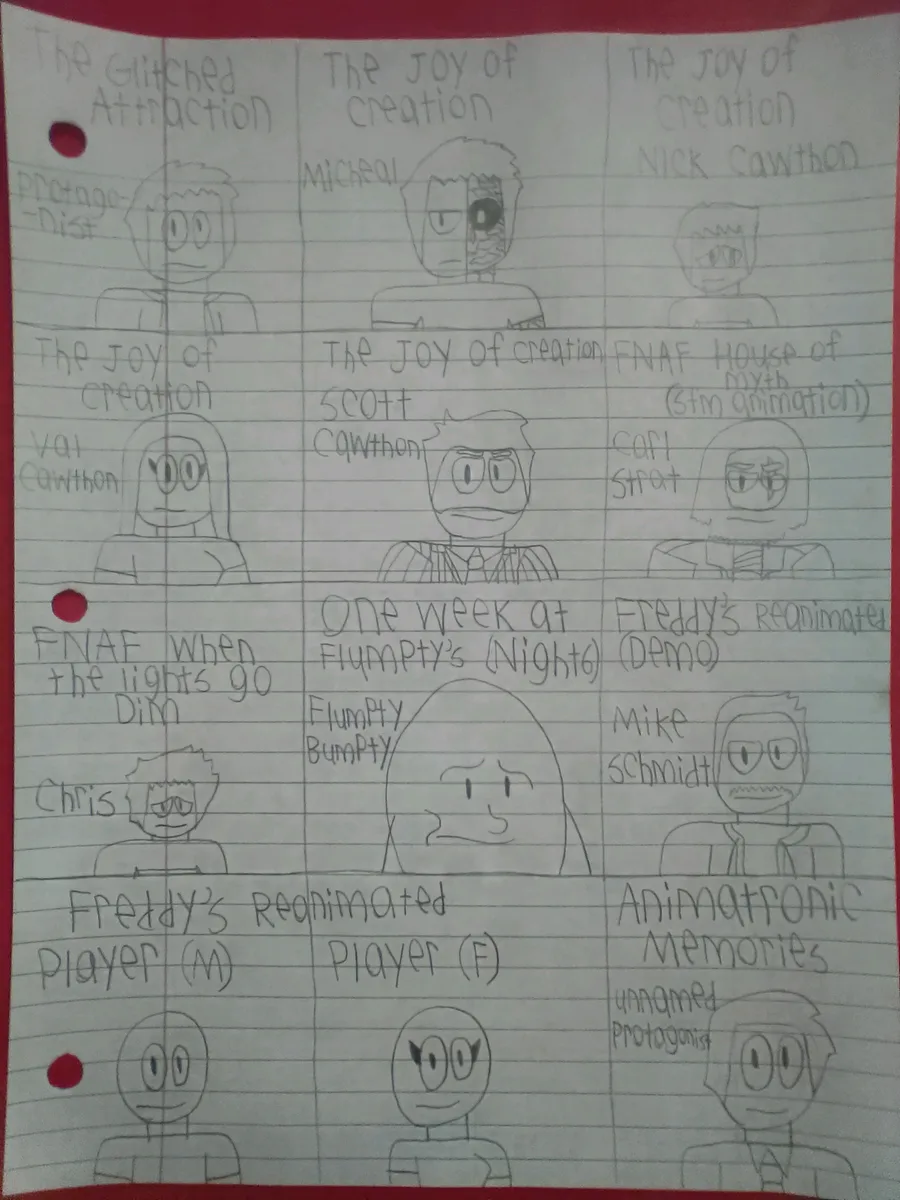 The Glitched
Attraction
Protago-
-nist
The Joy of
creation
Micheal
The Joy of
creation
Nick Cawthon
The Joy of
creation
Val
Cawthon
The Joy of creation
Scott
Cawthon
FNAF House of
Myth
(Sfm animation)
Carl
Strat
FNAF When
the lights go
Dim
Chris
One week at
Flumpty's (Night6)
Flumpty
Bumpty
Freddy's Reanimated
(Demo)
Mike
Schmidt
Freddy's Reanimated
Player (M)
Player (F)
Animatronic
Memories
unnamed
Protagonist